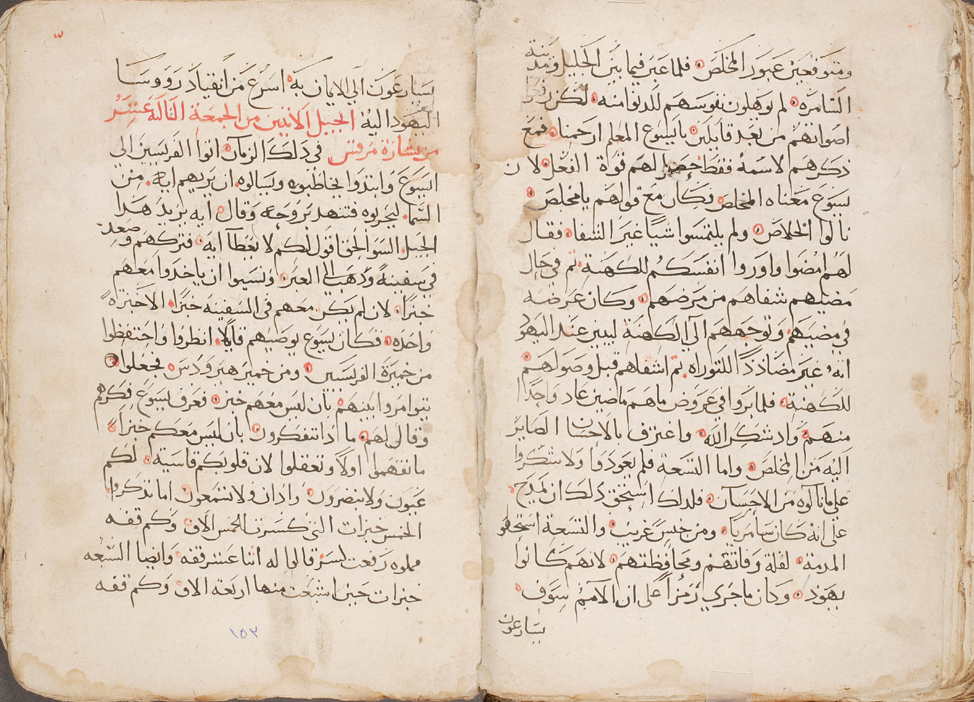 ومتوقعين عبور المخلص فلما عبر فيما بين الجليل ومدينة
السامره لم يوهلون نفوسهم للدنو منه لكن رفعوا
اصواتهم من بعد قايلين يايسوع المعلم ارحمنا فمع
ذكرهم لاسمه فقط لهم قوة الفعل لان
يسوع معناه المخلص فكان مع قولهم يامخلص
نالوا الخلاص ولم يلتمسوا شياً غير الشفا فقال
لهم امضوا واوروا انفسكم للكهنة ثم في حال
مضيهم شفاهم من مرضهم وكان غرضه
في مضيهم وتوجههم الى الكهنة ليبين عند اليهود
انه غير مضاددًا للتوراه ثم اشفاهم قبل وصولهم
للكهنة فلما براوا في عروض ماهم ماضين عاد واحدًا
منهم وادشكر الله واعترف بالاحسان الصاير
اليه من المخلص واما التسعة فلم يعودوا ولا شكروا
على ما نالوه من الاحسان فلذلك استحق ذلك ان يمدح
على انه كان سامريا ومن جنس غريب والتسعة استحقو
المدمة لقلة وفائهم ومحافظتهم لانهم كانوا
يهود وكان ماجري رمزًا على ان الامم سوف
يسارعون
٣
يسارعون الى الايمان به اسرع من انقياد روسا
اليهود اليه الجيل الاثنين من الجمعة الثالثة عشر
من بشارة مرقس في ذلك الزمان اتوا الفريسين الى
ايسوع وابتدوا يخاطبوه ويسالوه ان يريهم ايه من
السما ليجربوه فتنهد بروحه وقال ايه يريد هذا
الجيل السو الحق اقول لكم لا يعطا ايه فتركهم وصعد
في سفينة وذهب الى العبر ونسيوا ان ياخدوا معهم
خبزًا لان لم يكن معهم في السفينه خبزًا الا خبزه
واحده فكان يسوع يوصيهم قايلا انظروا واحتفظوا
من خميرة الفريسين ومن خمير هيرودس فجعلوا
يتوامروا بينهم بان ليس معهم خبز فعرف يسوع فكرهم
وقال لهم ما اذا تتفكرون بان ليس معكم خبزًا
ما تفهموا اولاً وتعقلوا لان قلوبكم قاسية لكم
عيون ولا تبصرون وادان ولا تسمعون اما تذكروا
الخمس خبزات التي كسرت لخمس الاف وكم قفه
مملوه رفعت كسر قالوا له اثنا عشر قفه وايضا السبعه
خبزات حين اشبعت منها اربعة الاف وكم قفه
١٥٣